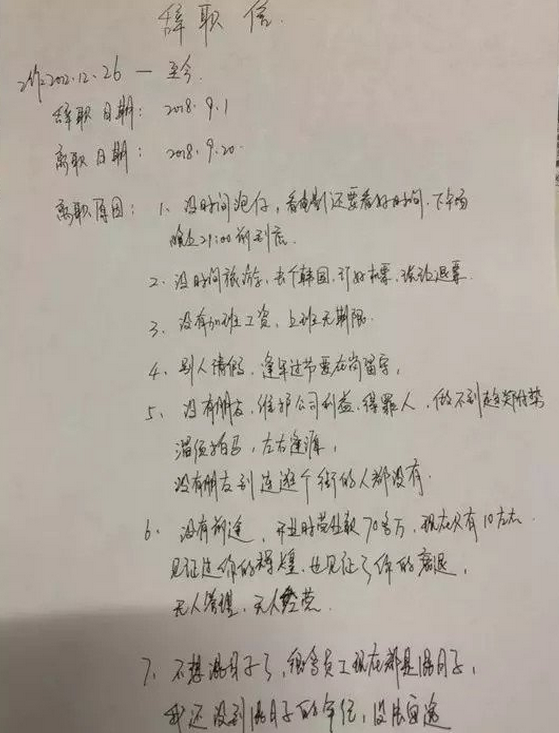 辞职信.
工作2012.12.26 — 至今.
辞职日期: 2018.9.1
离职日期: 2018.9.20.
离职原因: 1、没时间泡仔,看电影还要看好时间.下午场
晚上21:00前到店.
2、没时间旅游、去个韩国,订好机票、被迫退票.
3、没有加班工资、上班无期限.
4、别人请假、逢年过节要在岗留守,
5、没有朋友、维护公司利益、得罪人,做不到趋炎附势
溜须拍马,左右逢源,
没有朋友到连逛个街的人都没有.
6、没有前途,开业时营业款70多万,现在只有10左右
见证过你的辉煌,也见证了你的衰退,
无人管理,无人经营.
7、不想混日子了,很多员工现在都是混日子,
我还没到混日子的年纪,没法